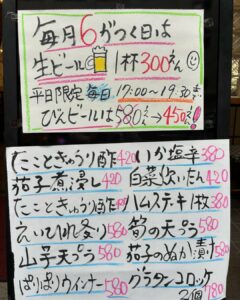 毎月6がつく日は
生ビール 1杯300さん
平日限定 毎日 17:00〜19:30まで
びんビールは580さん→450さん!
たこときゅうり酢420 いか塩辛380
茄子煮浸し420 白菜炊いたん420
たこときゅうり酢 ハムステキ1枚380
えいひれ炙り580 筍の天ぷら580
山芋天ぷら580 茄子のぬか漬け580
ぱりぱりウインナー580 グラタンコロッケ
2個180